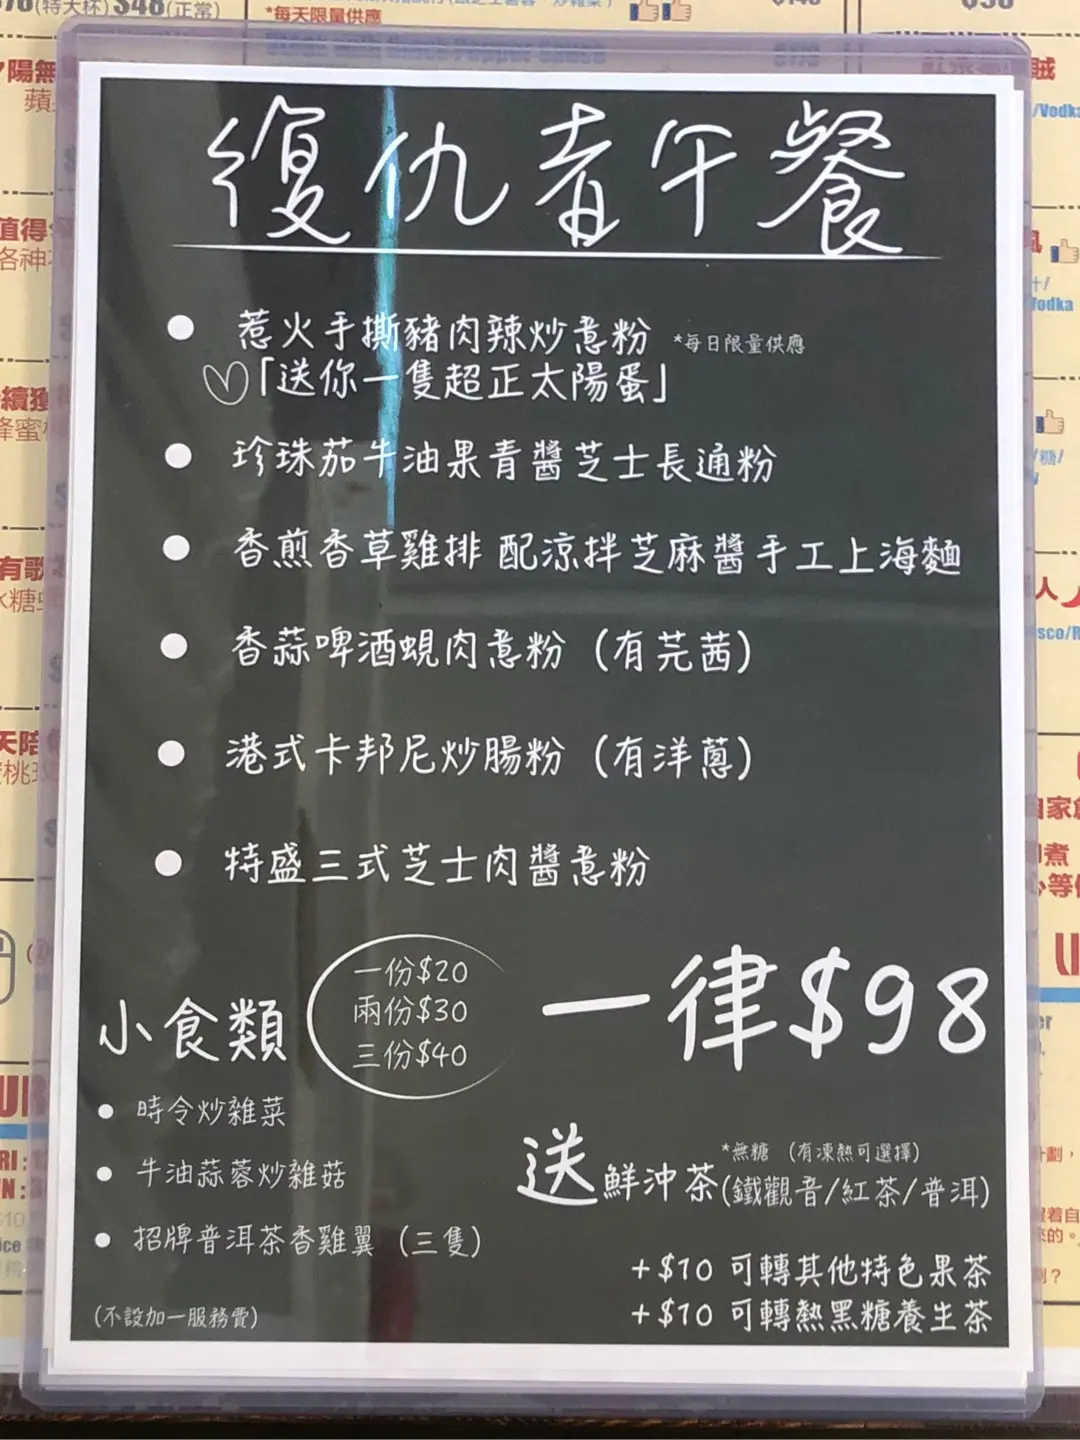 復仇者午餐
惹火手撕豬肉辣炒意粉 *每日限量供應
「送你一隻超正太陽蛋」
珍珠茄牛油果青醬芝士長通粉
香煎香草雞排 配涼拌芝麻醬手工上海麵
香蒜啤酒蜆肉意粉（有芫茜）
港式卡邦尼炒腸粉（有洋蔥）
特盛三式芝士肉醬意粉
一律$98
小食類
一份$20
兩份$30
三份$40
時令炒雜菜
牛油蒜蓉炒雜菇
招牌普洱茶香雞翼（三隻）
(不設加一服務費)
*無糖 （有凍熱可選擇）
送鮮沖茶(鐵觀音/紅茶/普洱)
+$10 可轉其他特色果茶
+$10 可轉熱黑糖養生茶
*每天限量供應
$48(正常)
(特大杯)